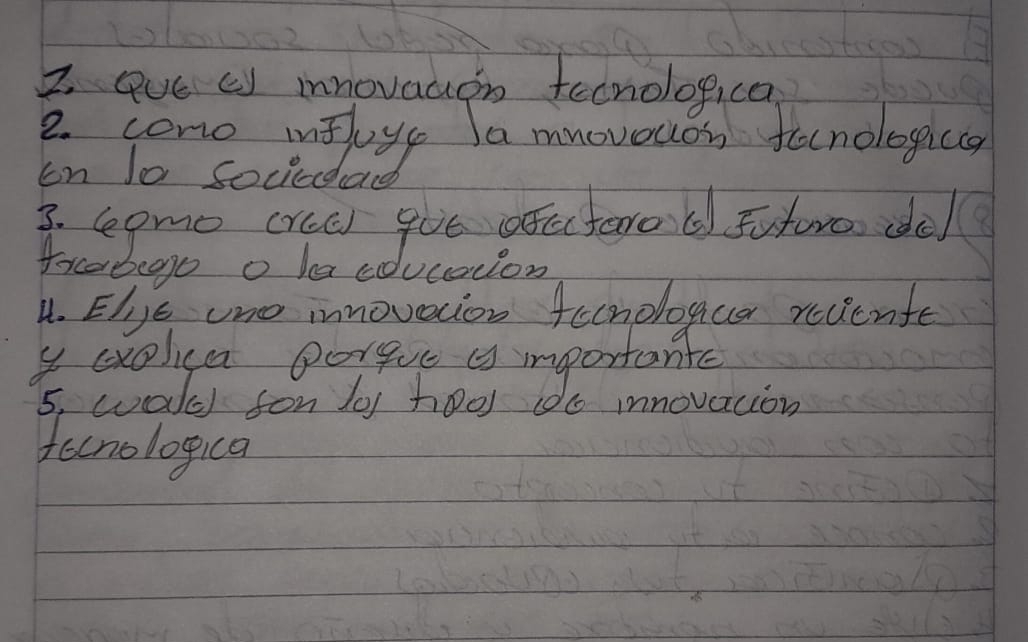 1. Que es innovación tecnologica
2. como influye la innovación tecnologica
en la sociedad
3. como crees que afectara el Futuro del
trabajo o la educación
4. Elije una innovacion tecnologica reciente
y explica porque es importante
5. cuales son los tipos de innovación
tecnologica